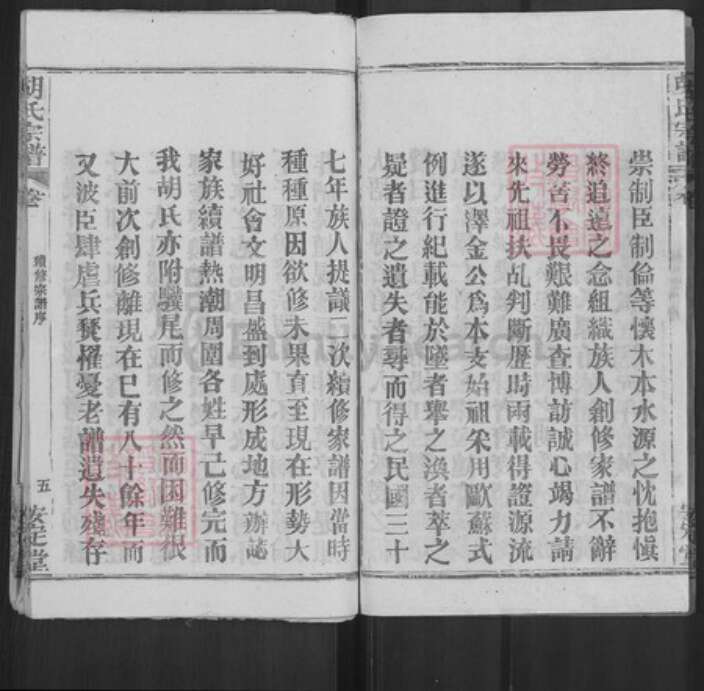 崇制臣制倫等懷木本水源之忱抱愼
終追遠之念組織族人創修家譜不辭
勞苦不畏艱難廣查博訪誠心竭力請
來先祖扶乩判斷歷時兩載得證源流
遂以澤金公爲本支始祖采用歐蘇式
例進行紀載能於墜者舉之渙者萃之
疑者證之遺失者尋而得之民國三十
七年族人提議二次續修家譜因當時
種種原因欲修未果直至現在形勢大
好社會文明昌盛到處形成地方辦誌
家族續譜熱潮周圍各姓早已修完而
我胡氏亦附驥尾而修之然而困難很
大前次創修離現在已有八十餘年而
又波臣肆虐兵燹罹憂老譜遺失殘存
胡氏宗譜
卷
續修宗譜序
五
安定堂